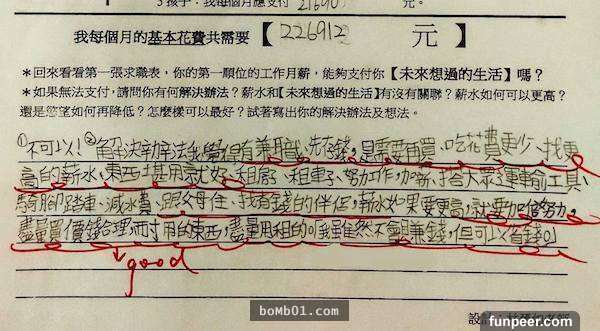 3.孩子：我每個月應支付 21690 元。
我每個月的基本花費共需要【226912】元
＊回來看看第一張求職表，你的第一順位的工作月薪，能夠支付你【未來想過的生活】嗎？
＊如果無法支付，請問你有何解決辦法？薪水和【未來想過的生活】有沒有關聯？薪水如何可以更高？
還是慾望如何再降低？怎麼樣可以最好？試著寫出你的解決辦法及想法。
①不可以！②解決辦法我覺得有兼職、先存錢，是需要再買、吃花費更少、找更
高的薪水、東西堪用就好、租房、租車子、努力工作，加薪、搭大眾運輸工具、
騎腳踏車、減水費、跟父母住、找有錢的伴侶，薪水如果要更高，就要加倍努力，
盡量買價錢合理而耐用的東西，盡量用租的。我雖然不會賺錢，但可以省錢。
good
設計：
boMb01.com
funpeer.com